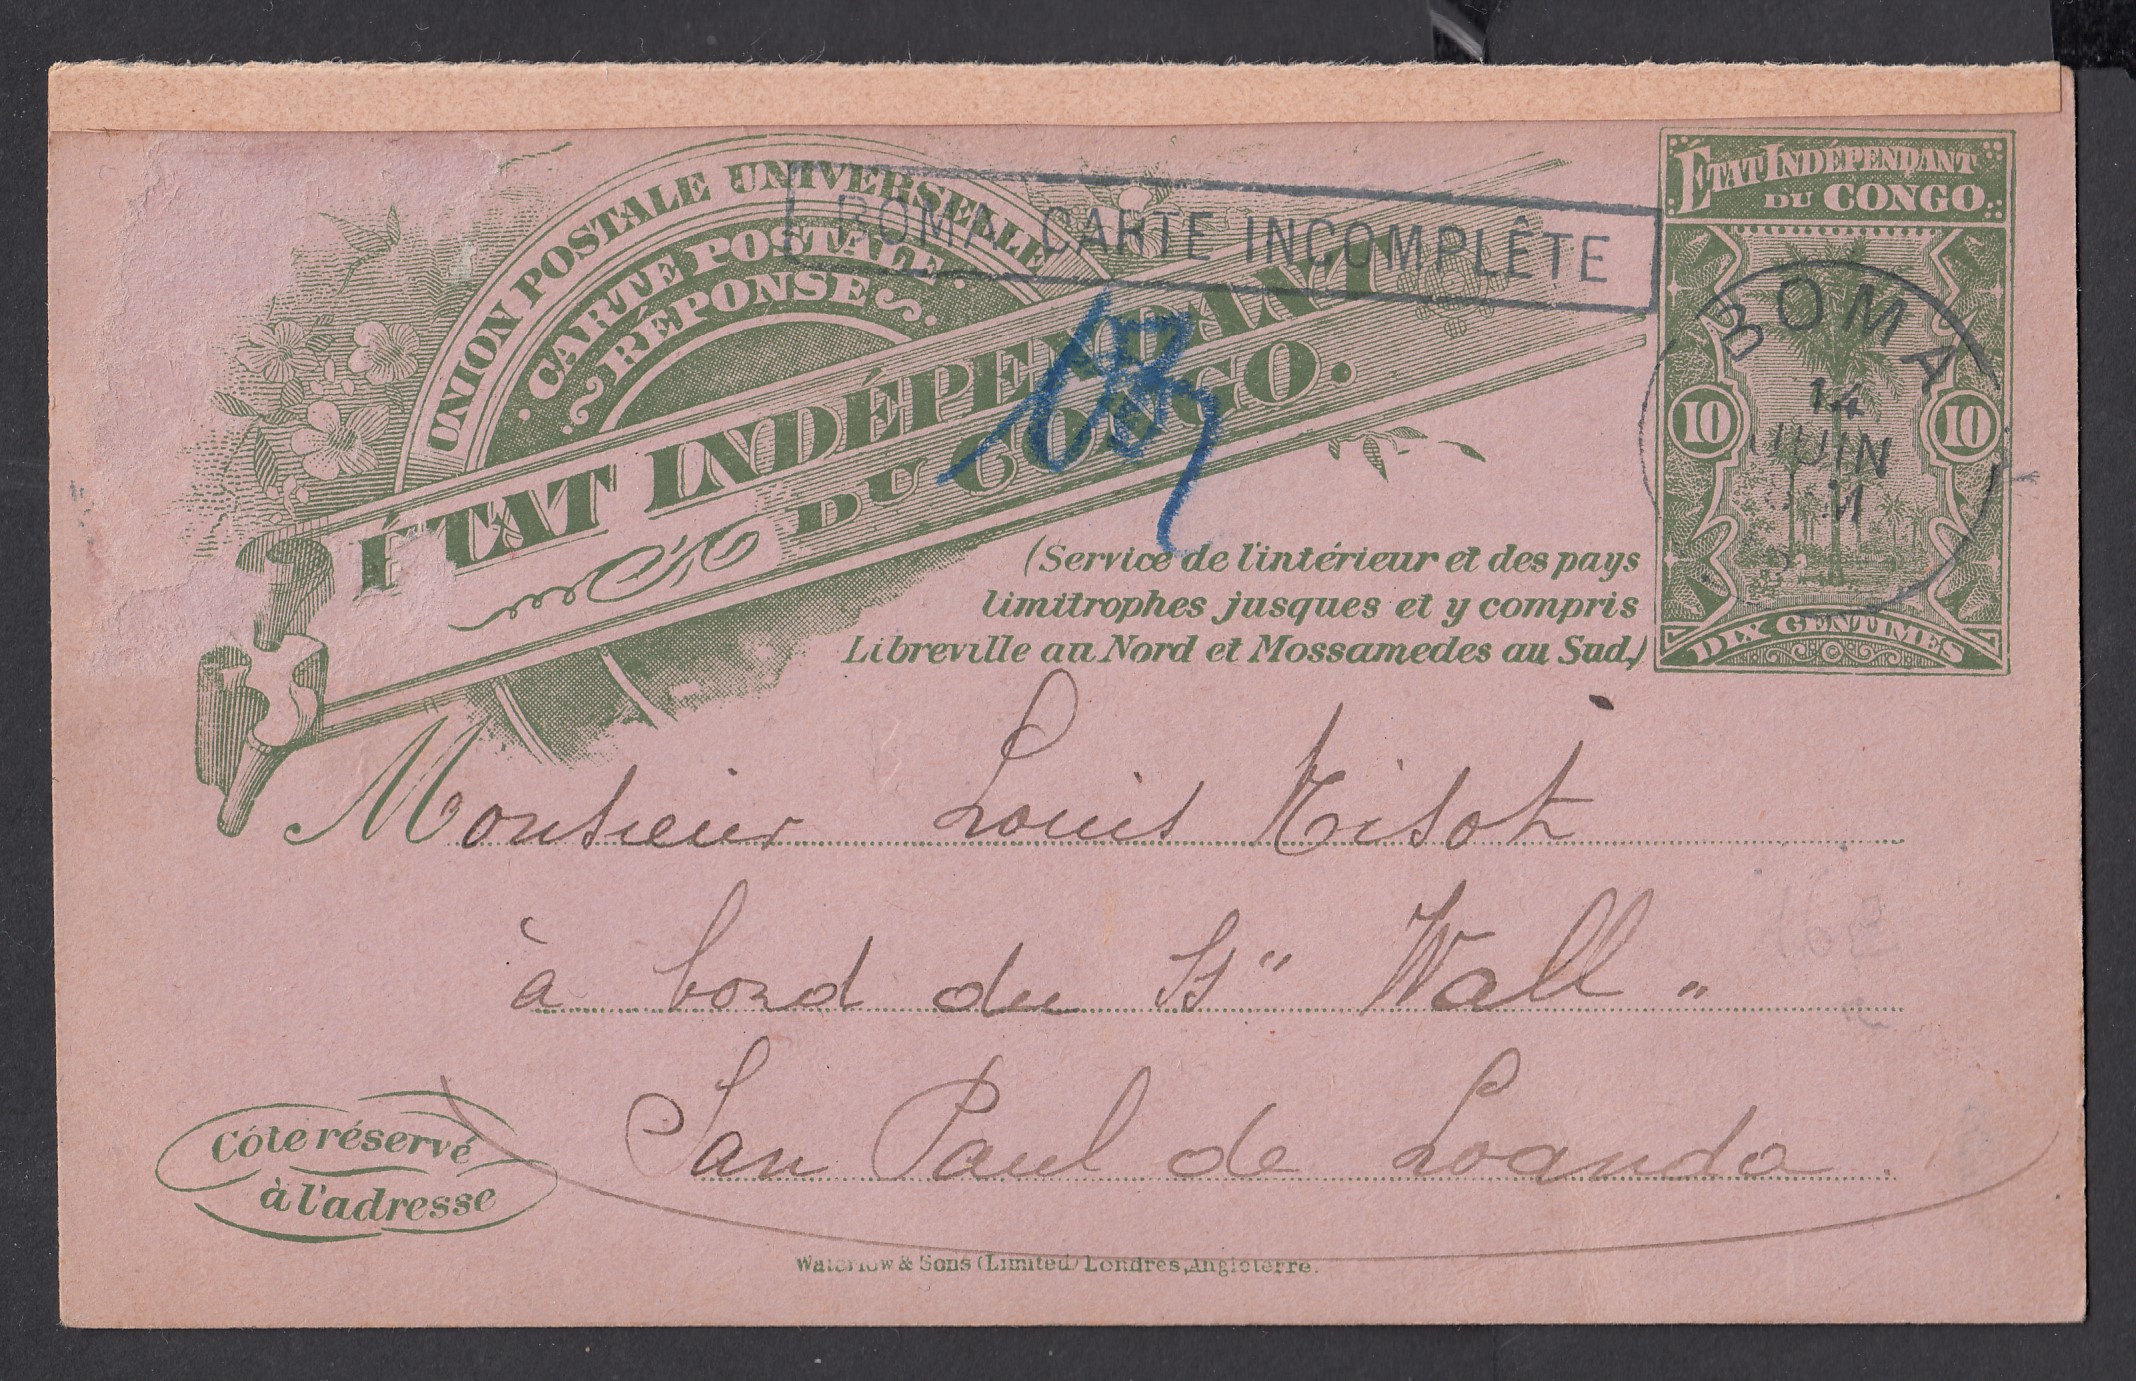 UNION POSTALE UNIVERSELLE
CARTE POSTALE
RÉPONSE
ÉTAT INDÉPENDANT
DU CONGO.
BOMA CARTE INCOMPLÈTE
ÉTAT INDÉPENDANT
DU CONGO
BOMA
14
JUIN
10 10
DIX CENTIMES
(Service de l'intérieur et des pays
limitrophes jusques et y compris
Libreville au Nord et Mossamedes au Sud.)
Monsieur Louis
à bord du SS "Wall"
San Paul de Loanda
Côte réservé
à l'adresse
Waterlow & Sons (Limited) Londres, Angleterre.